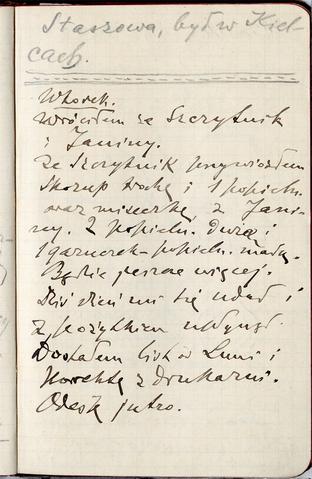 Staszowa, był w Kiel-
cach.
Wtorek.
Wróciłem ze Szczytnik
i Janiny.
Ze Szczytnik przywiozłem
Skorup trochę i 1 popieln.
oraz miseczkę, z Jani-
ny. 2 popieln. duże i
1 garnerek-popieln. mały.
Będzie jeszcze więcej.
Dziś dzień mi się udał i
z pożytkiem upłynął.
Dostałem list od Luni i
Korektę z drukarni.
Odeślę jutro.